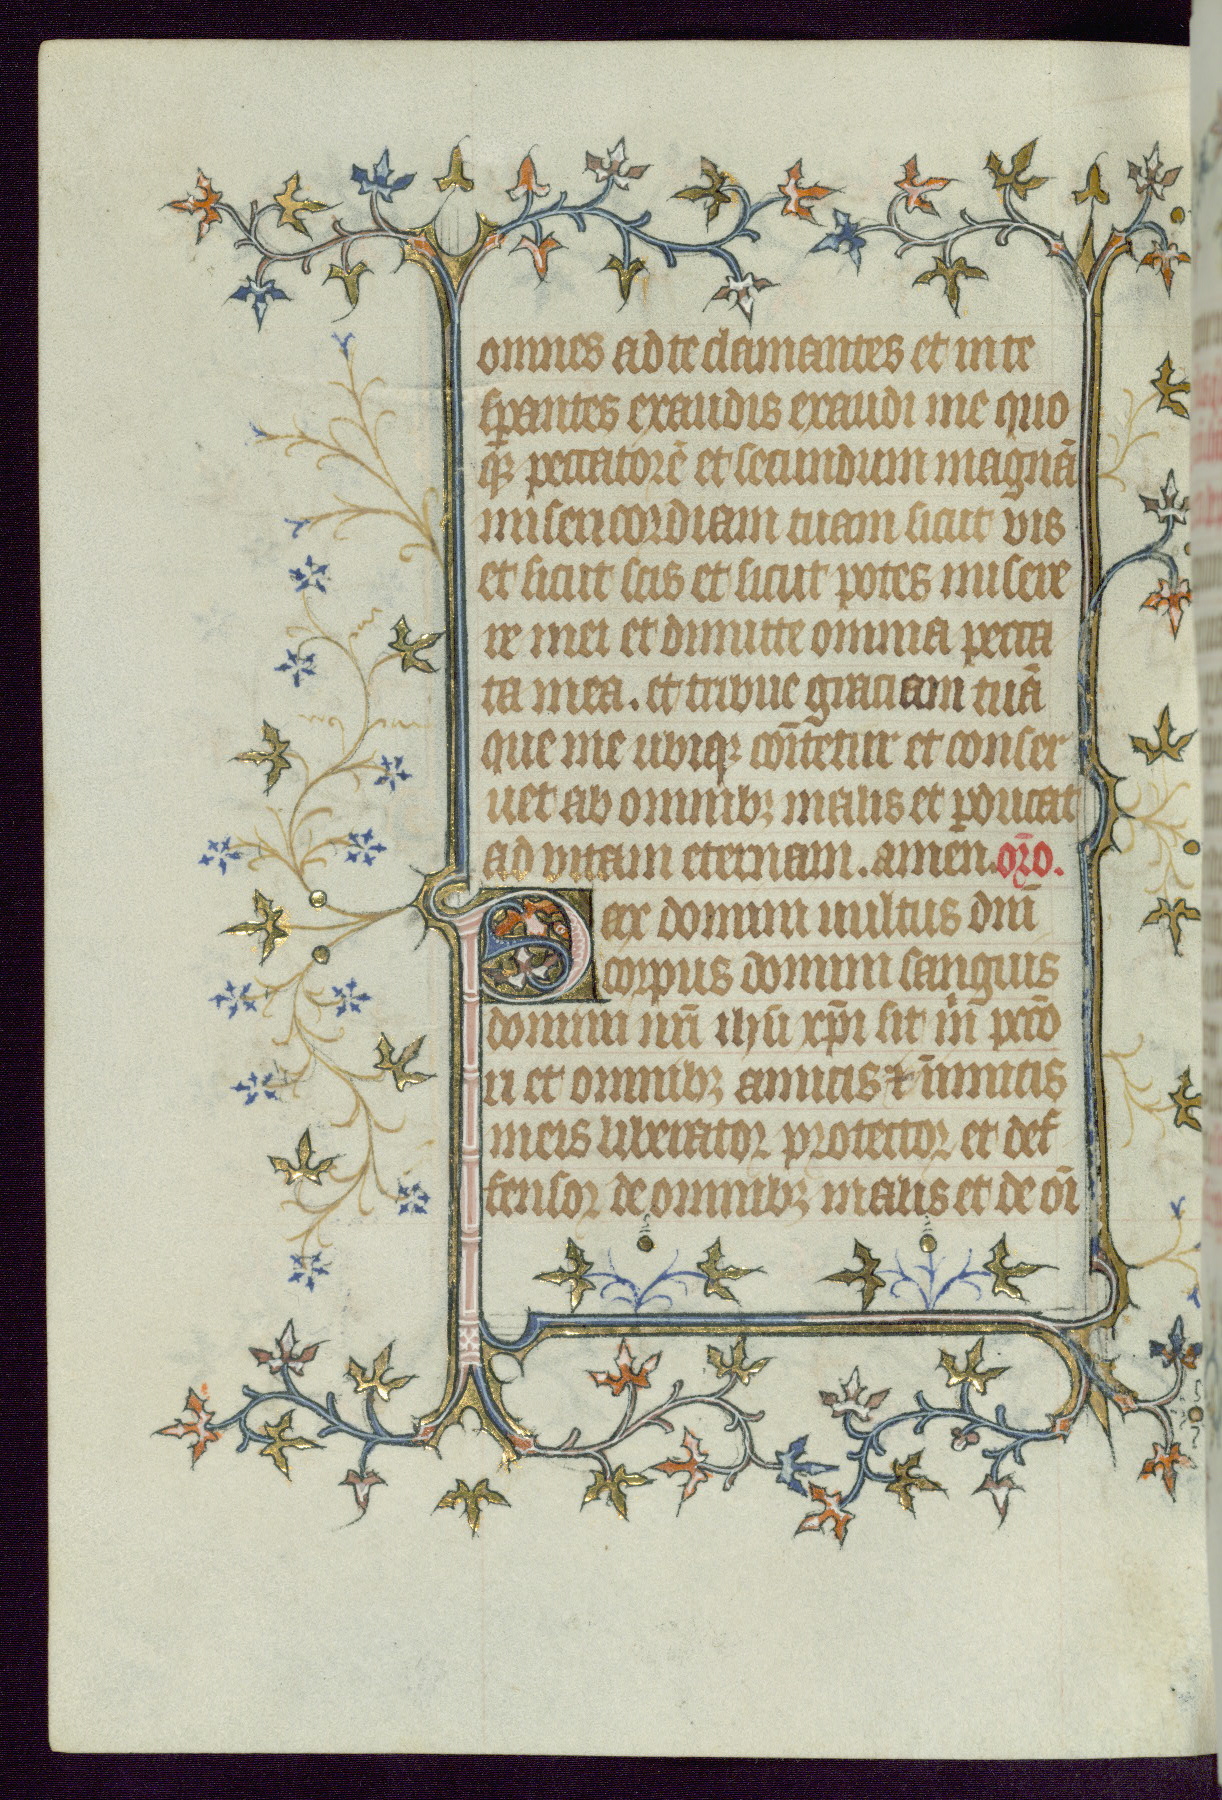 omnes ad te clamantes et in te
sꝑantes exaudis exaudi me quo
qꝫ peccatorē et secundum magnā
misericordiam tuam sicut vis
et sicut scis et sicut potes misere
re mei et dimitte omnia pecca
ta mea. et tribue graciam tuā
que me ubiqꝫ con̄tetur et conser
uet ab omnibꝫ malis et ꝑducat
ad vitam eternam. amen. or̄o.
Pax domini uultus dn̄i
corpus domini sanguis
domini nr̄i ihū xp̄i sit m̄ pccō
ri et omnibꝫ amicis ⁊ īimicis
meis liberator protector et def
fensor de omnibꝫ malis et de oī